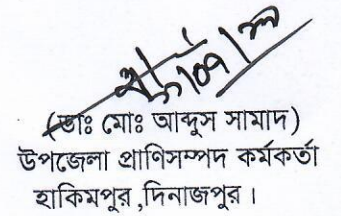 (ডাঃ মোঃ আব্দুস সামাদ)
উপজেলা প্রাণিসম্পদ কর্মকর্তা
হাকিমপুর ,দিনাজপুর ।